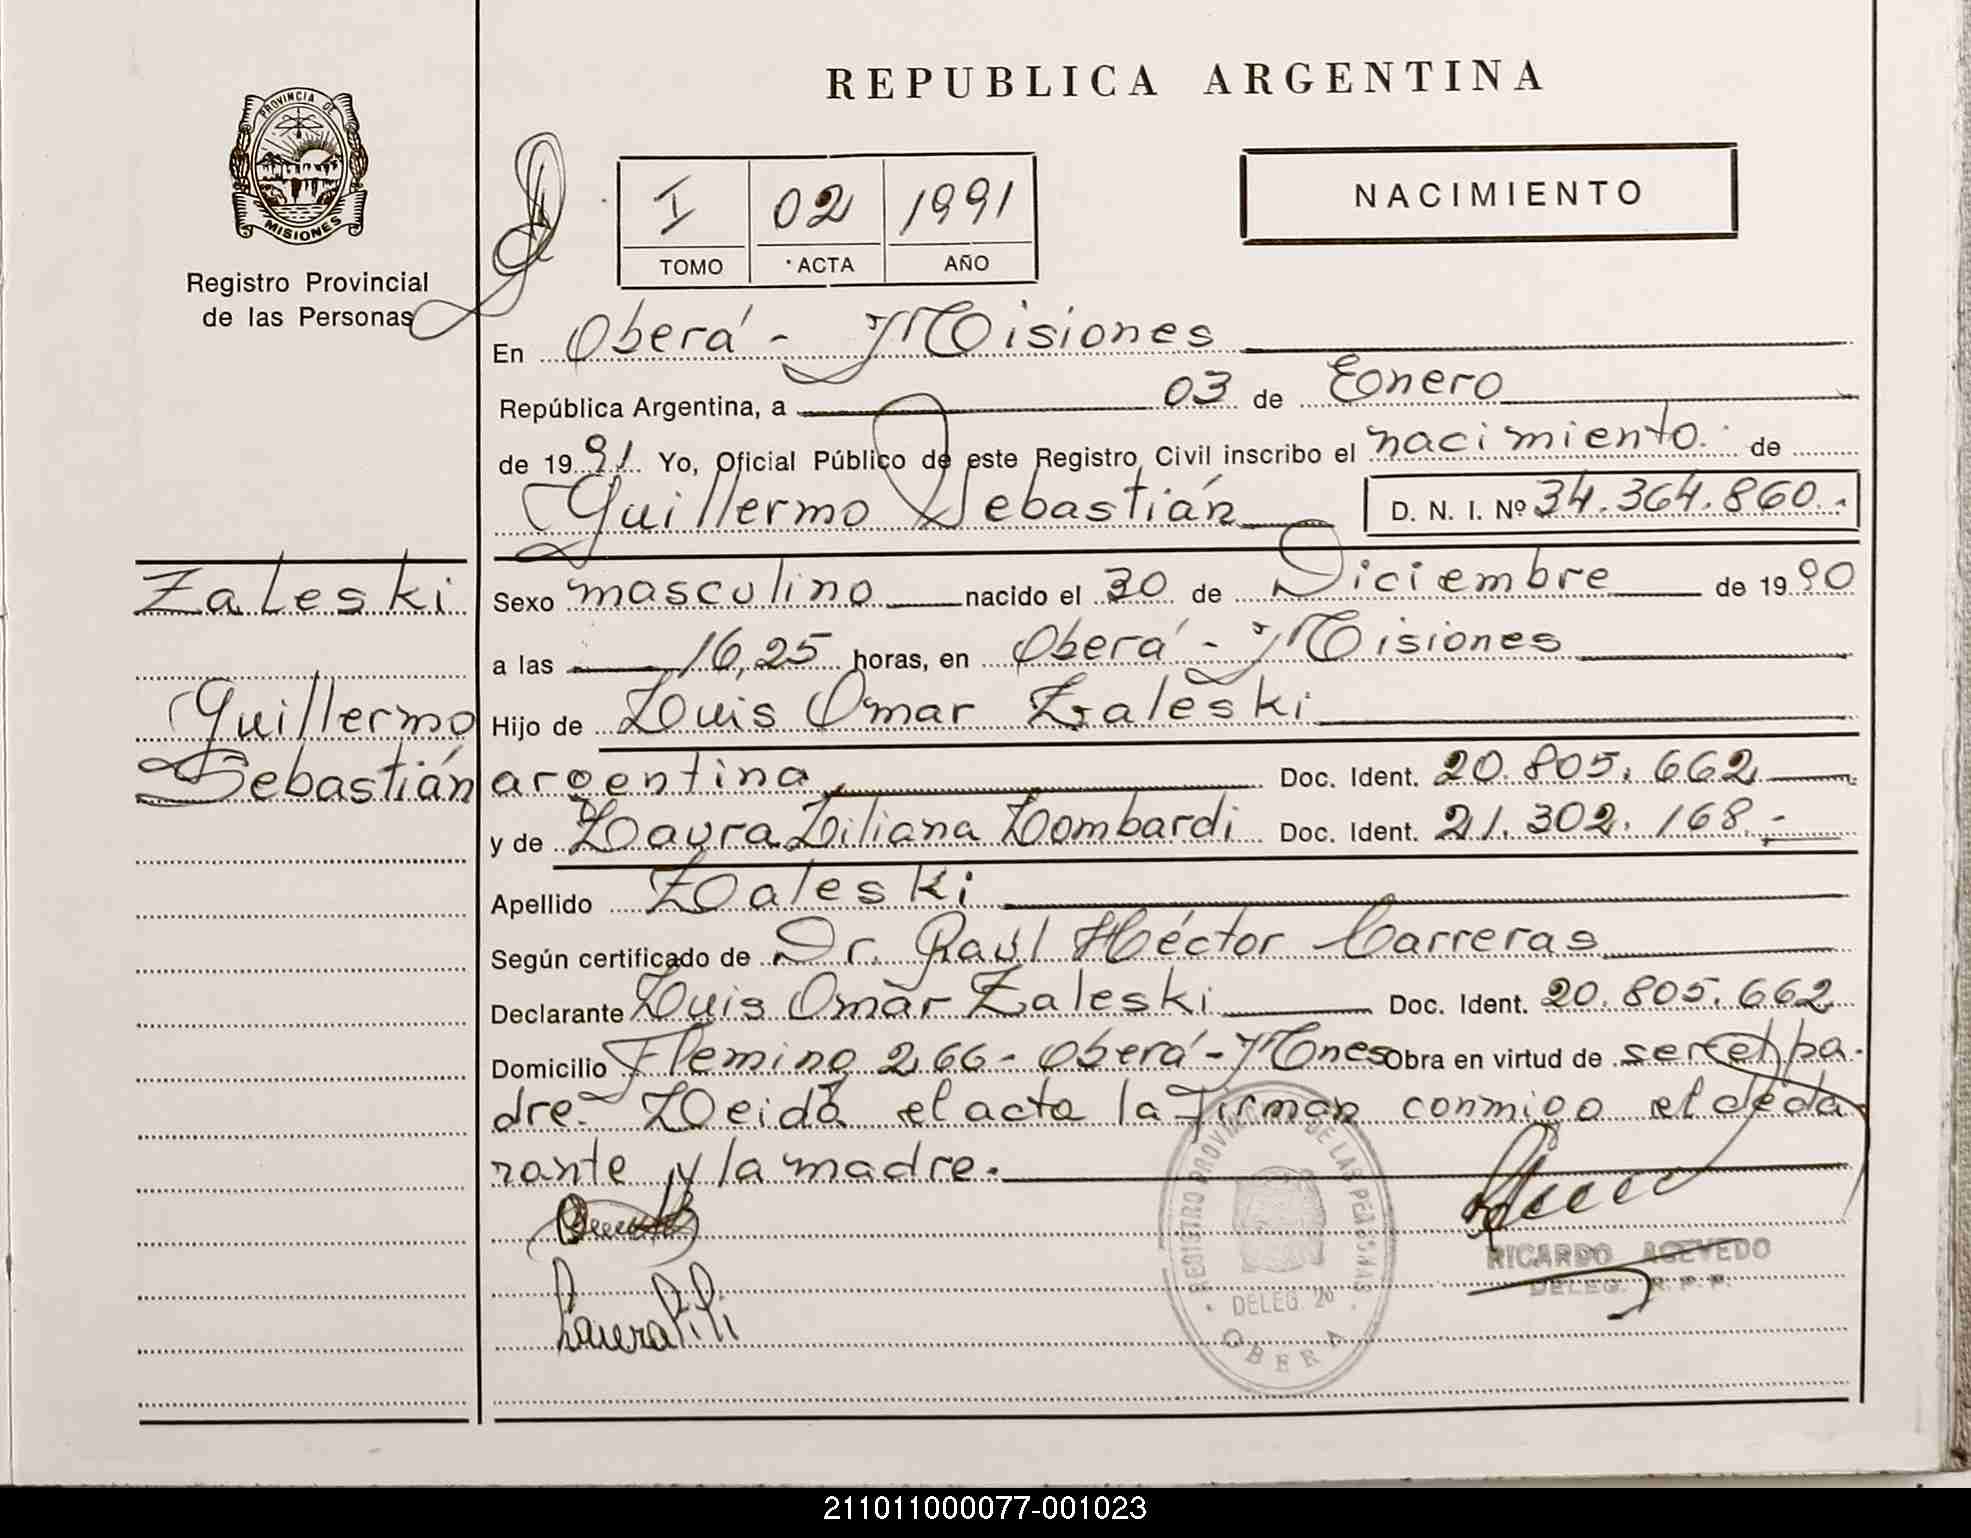 REPUBLICA ARGENTINA
PROVINCIA DE
MISIONES
Registro Provincial
de las Personas
I 02 1991
TOMO ACTA AÑO
NACIMIENTO
En Oberá - Misiones
República Argentina, a 03 de Enero
de 1991 Yo, Oficial Público de este Registro Civil inscribo el nacimiento de
Guillermo Sebastián D. N. I. Nº 34.364.860.-
Zaleski
Guillermo
Sebastián
Sexo masculino nacido el 30 de Diciembre de 1990
a las 16,25 horas, en Oberá - Misiones
Hijo de Luis Omar Zaleski
argentina Doc. Ident. 20.805.662
y de Laura Liliana Lombardi Doc. Ident. 21.302.168.-
Apellido Zaleski
Según certificado de Dr. Raúl Héctor Carreras
Declarante Luis Omar Zaleski Doc. Ident. 20.805.662
Domicilio Fleming 266 - Oberá - Mnes Obra en virtud de ser el pa-
dre. Leida el acta la firman conmigo el decla
rante y la madre.
REGISTRO PROVINCIAL DE LAS PERSONAS
DELEG. 20
OBERA
RICARDO ACEVEDO
DELEG. R. P. P.
211011000077-001023